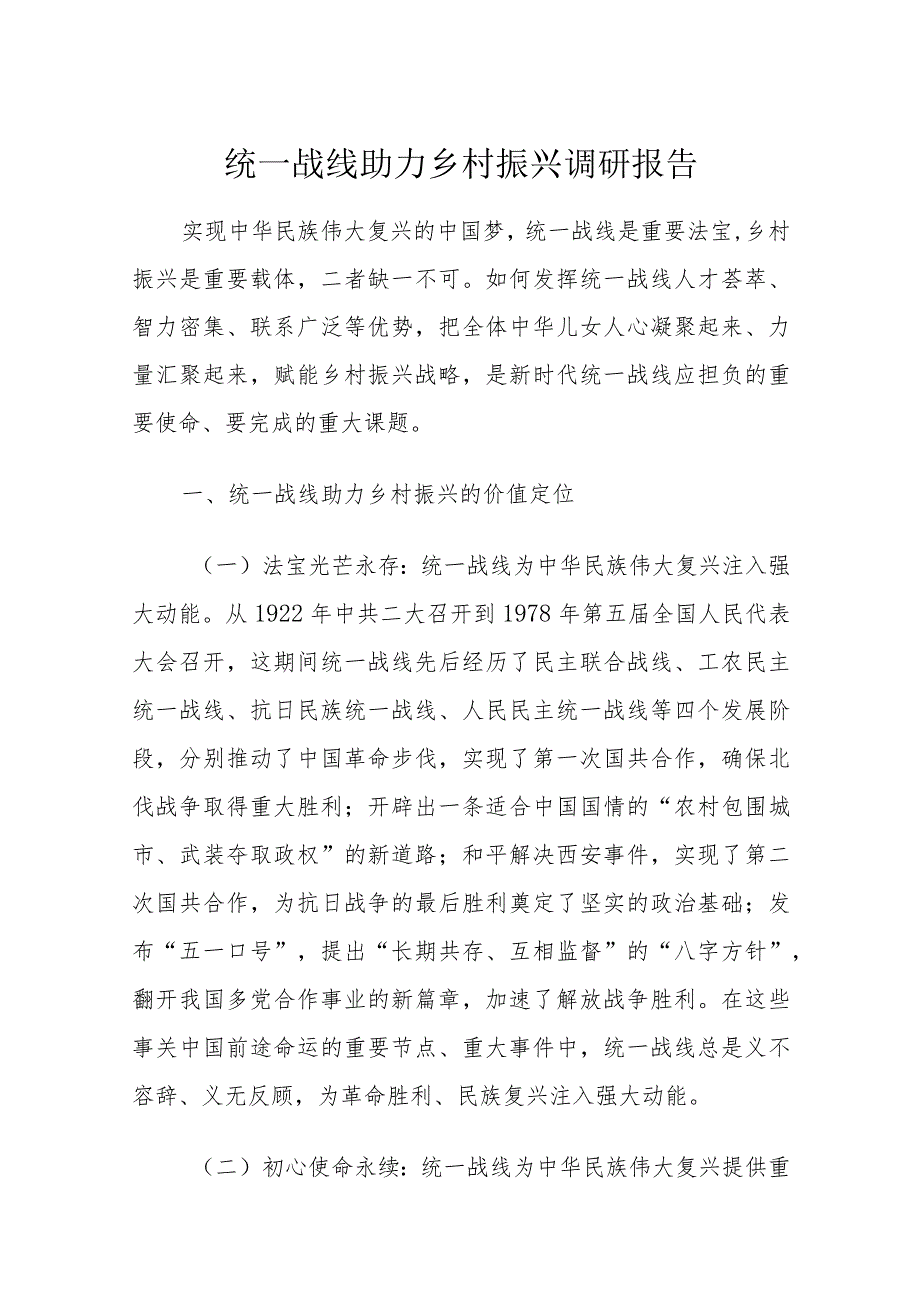 统一战线助力乡村振兴调研报告
实现中华民族伟大复兴的中国梦，统一战线是重要法宝,乡村
振兴是重要载体，二者缺一不可。如何发挥统一战线人才荟萃、
智力密集、联系广泛等优势，把全体中华儿女人心凝聚起来、力
量汇聚起来，赋能乡村振兴战略，是新时代统一战线应担负的重
要使命、要完成的重大课题。
一、统一战线助力乡村振兴的价值定位
（一）法宝光芒永存：统一战线为中华民族伟大复兴注入强
大动能。从1922年中共二大召开到1978年第五届全国人民代表
大会召开，这期间统一战线先后经历了民主联合战线、工农民主
统一战线、抗日民族统一战线、人民民主统一战线等四个发展阶
段，分别推动了中国革命步伐，实现了第一次国共合作，确保北
伐战争取得重大胜利；开辟出一条适合中国国情的“农村包围城
市、武装夺取政权”的新道路；和平解决西安事件，实现了第二
次国共合作，为抗日战争的最后胜利奠定了坚实的政治基础；发
布“五一口号”，提出“长期共存、互相监督”的“八字方针”，
翻开我国多党合作事业的新篇章，加速了解放战争胜利。在这些
事关中国前途命运的重要节点、重大事件中，统一战线总是义不
容辞、义无反顾，为革命胜利、民族复兴注入强大动能。
（二）初心使命永续：统一战线为中华民族伟大复兴提供重